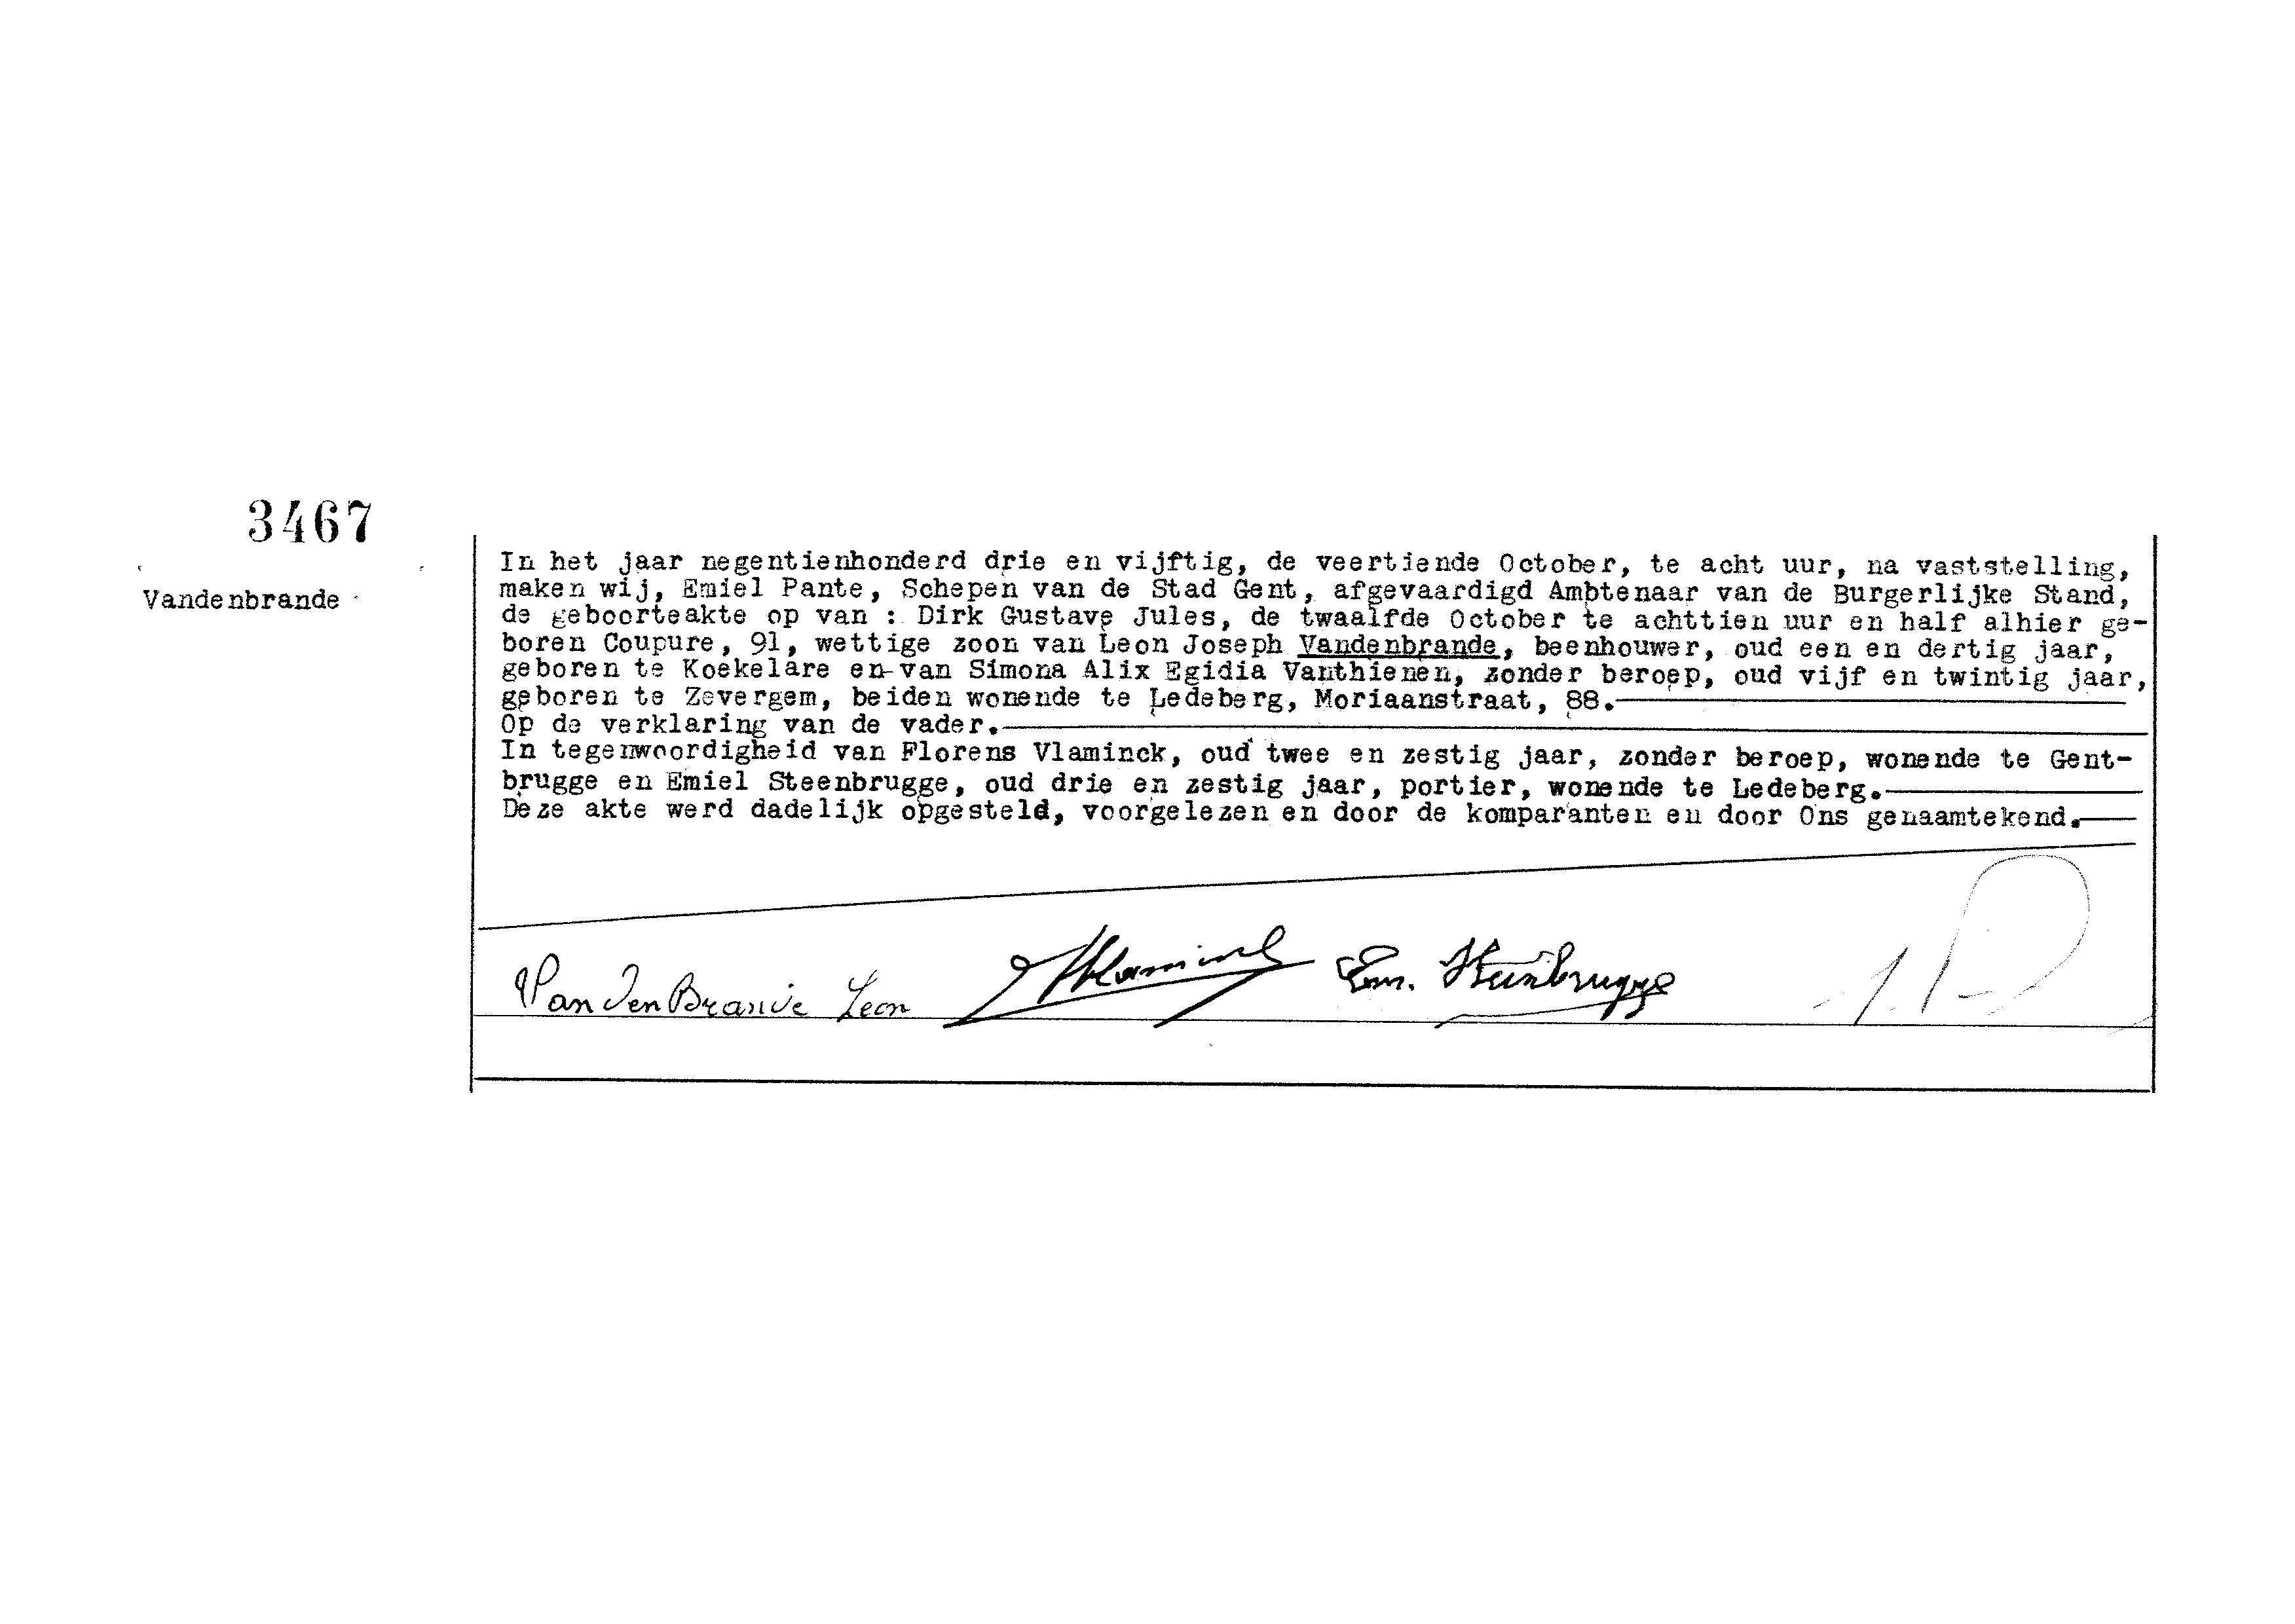 3467
Vandenbrande
In het jaar negentienhonderd drie en vijftig, de veertiende October, te acht uur, na vaststelling,
maken wij, Emiel Pante, Schepen van de Stad Gent, afgevaardigd Ambtenaar van de Burgerlijke Stand,
de geboorteakte op van : Dirk Gustave Jules, de twaalfde October te achttien uur en half alhier ge-
boren Coupure, 91, wettige zoon van Leon Joseph Vandenbrande, beenhouwer, oud een en dertig jaar,
geboren te Koekelare en van Simona Alix Egidia Vanthienen, zonder beroep, oud vijf en twintig jaar,
geboren te Zevergem, beiden wonende te Ledeberg, Moriaanstraat, 88.
Op de verklaring van de vader.
In tegenwoordigheid van Florens Vlaminck, oud twee en zestig jaar, zonder beroep, wonende te Gent-
brugge en Emiel Steenbrugge, oud drie en zestig jaar, portier, wonende te Ledeberg.
Deze akte werd dadelijk opgesteld, voorgelezen en door de komparanten en door Ons genaamtekend.
Van Den Brande Leon Vlaminck Em. Steenbrugge